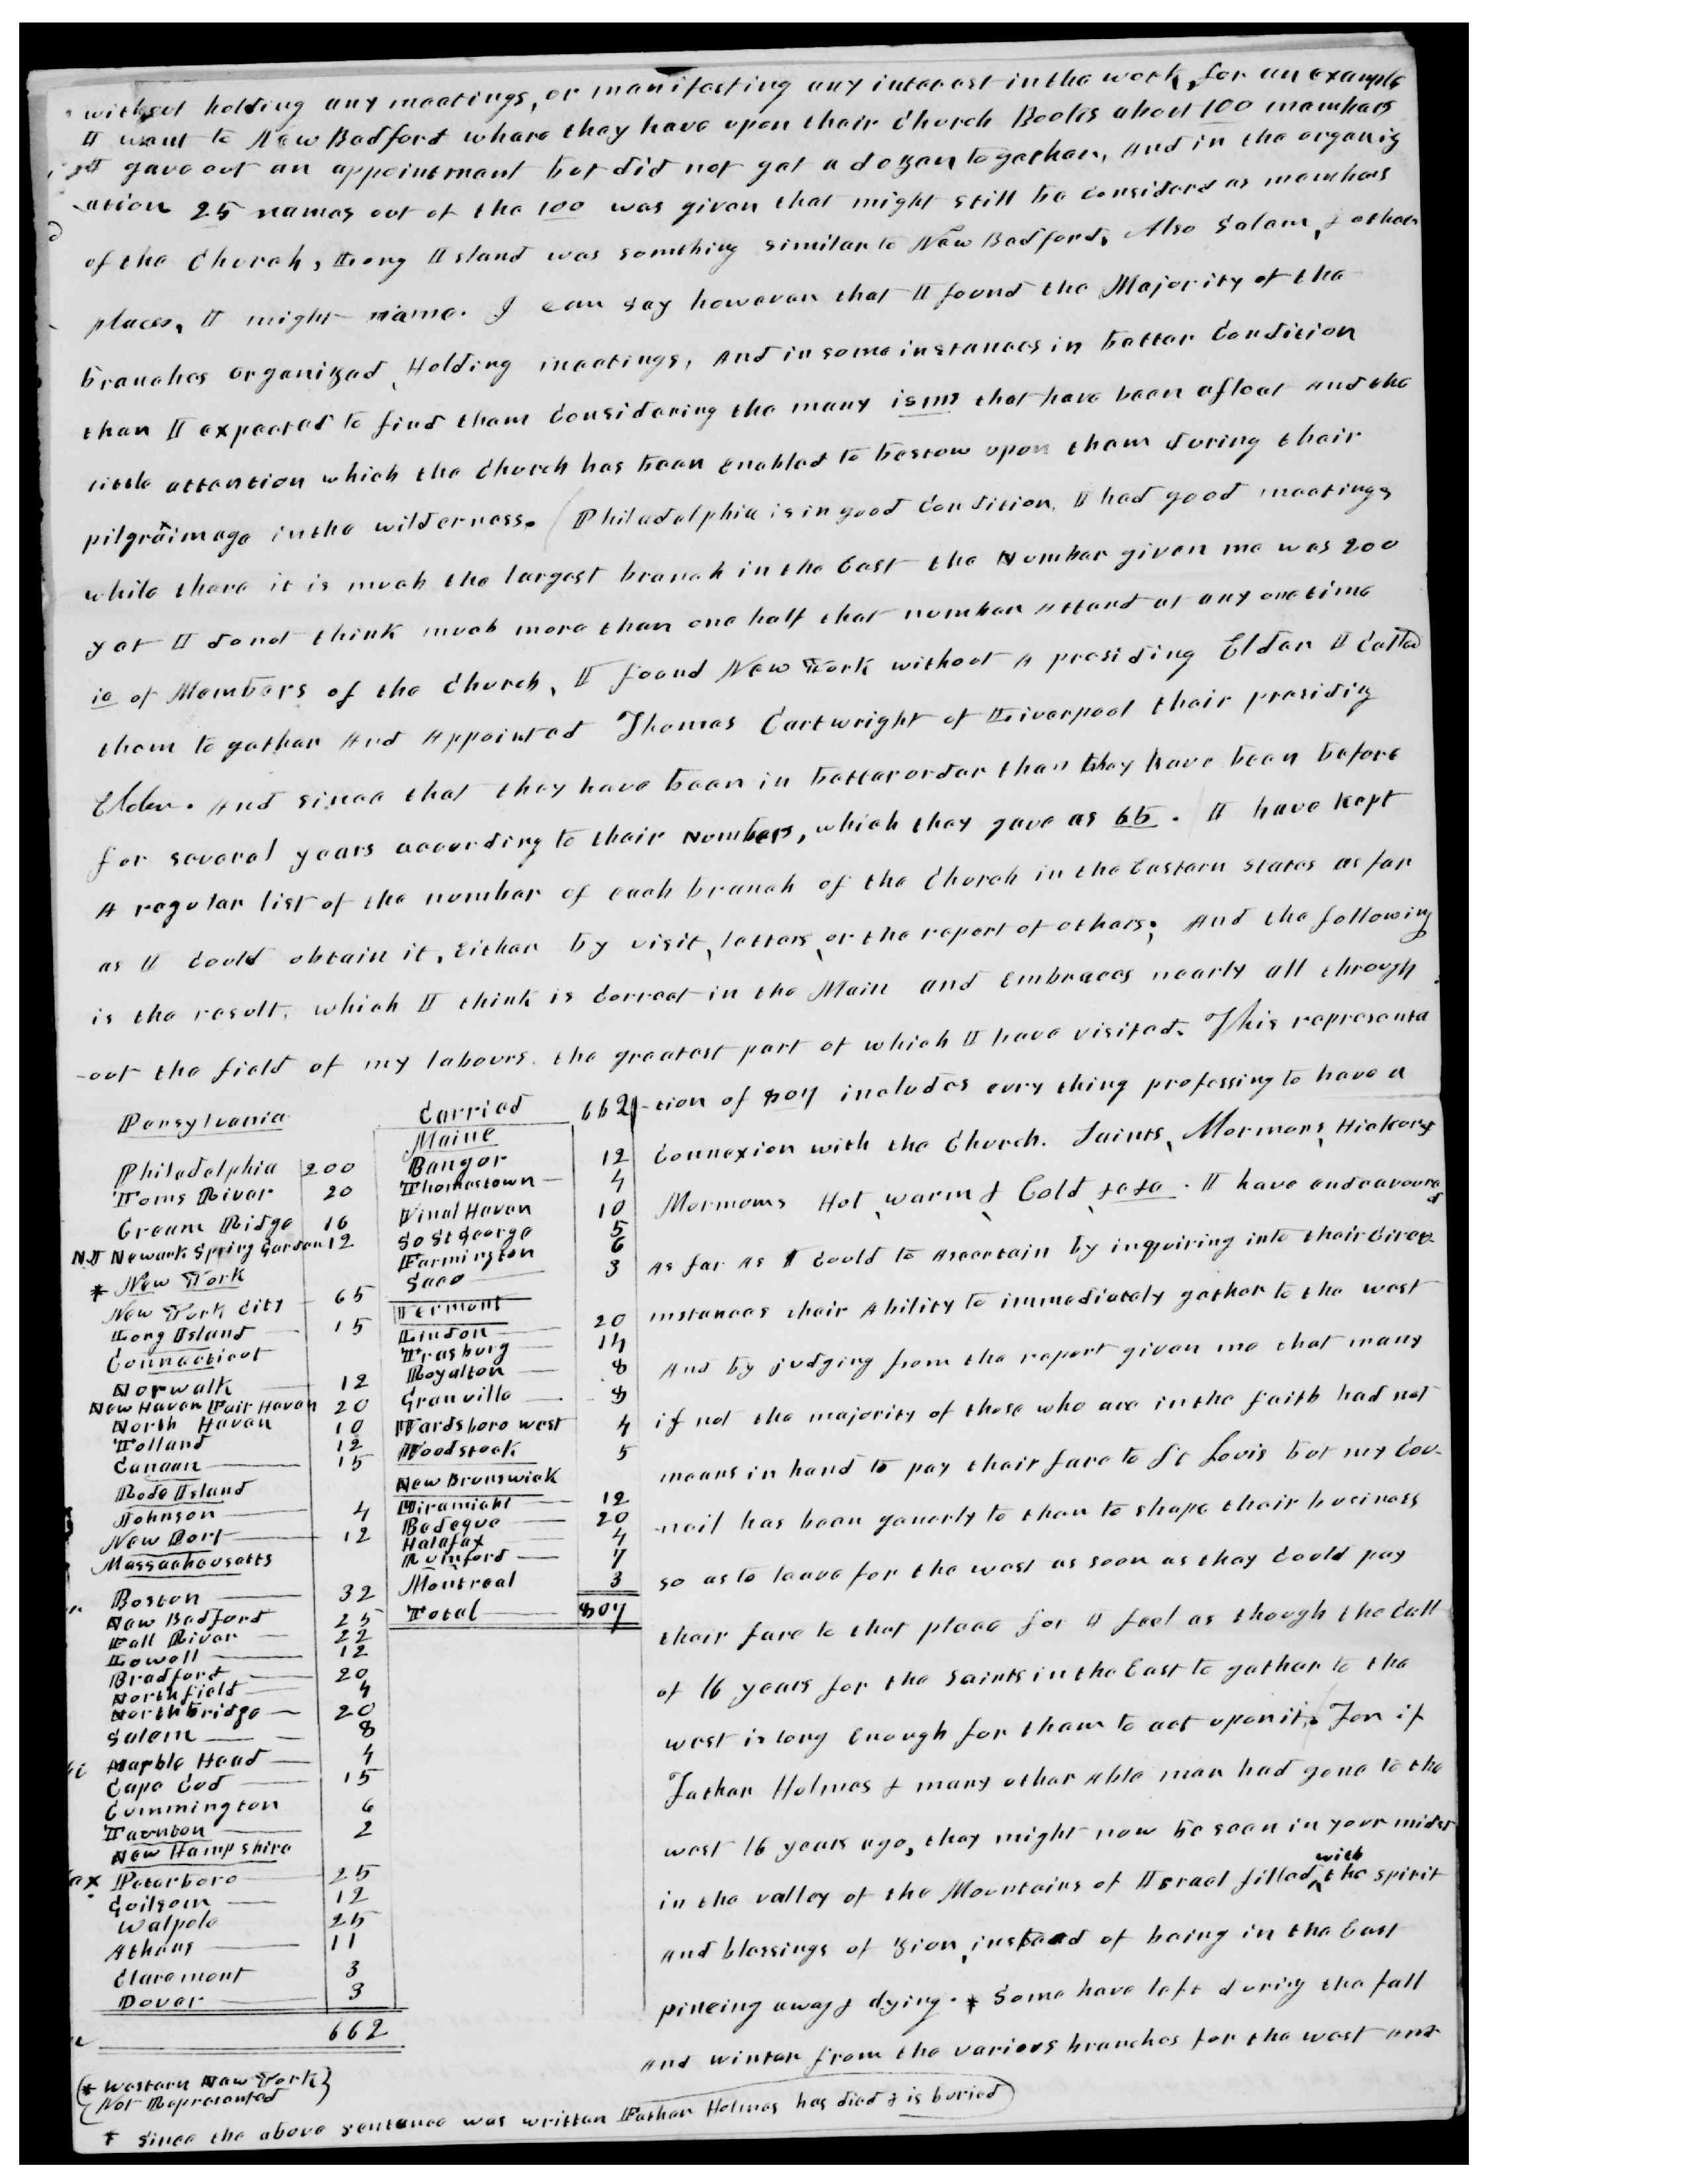 without holding any meetings, or manifesting any interest in the work, for an example
I went to New Bedford where they have upon their Church Books about 100 members
I gave out an appointment but did not get a dozen together, And in the organiz
-ation 25 names out of the 100 was given that might still be Considerd as members
of the Church, Long Island was somthing similar to New Bedford, Also Salem, & other
places, I might name. I can say however that I found the Majority of the
branches organized, Holding meetings, And in some instances in better Condition
than I expected to find them Considering the many isms that have been afloat And the
little attention which the Church has been enabled to bestow upon them during their
pilgraimage in the wilderness. Philadelphia is in good Condition, I had good meetings
while there it is much the largest branch in the East the Number given me was 200
yet I do not think much more than one half that number Attend at any one time
ie of Members of the Church, I found New York without A presiding Elder I Called
them together And Appointed Thomas Cartwright of Liverpool their presiding
Elder. And since that they have been in better order than they have been before
for several years according to their Numbers, which they gave as 65. I have kept
A regular list of the number of each branch of the Church in the Eastern States as far
as I Could obtain it, Either by visit, letters, or the report of others; And the following
is the result, which I think is Correct in the Main and Embraces nearly all through
-out the field of my labours. the greatest part of which I have visited. This representa
Pensylvania
Philadelphia 200
Toms River 20
Cream Ridge 16
NJ Newark Spring Garden 12
* New York
New York City 65
Long Island 15
Connecticut
Norwalk 12
New Haven Fair Haven 20
North Haven 10
Tolland 12
Canaan 15
Rode Island
Johnson 4
New Port 12
Massachusetts
Boston 32
New Bedford 25
Fall River 22
Lowell 12
Bradford 20
Northfield 4
Northbridge 20
Salem 8
Marble Head 4
Cape Cod 15
Cummington 6
Taunton 2
New Hampshire
Peterboro 25
Gilsom 12
Walpole 25
Athens 11
Claremont 3
Dover 3
662
(* Western New York)
(Not Represented)
Carried 662
Maine
Bangor 12
Thomastown 4
Vinal Haven 10
So St George 5
Farmington 6
Saco 3
Vermont
Lindon 20
Irasburg 14
Royalton 8
Granville 8
Wardsboro west 4
Woodstock 5
New Brunswick
Miramichi 12
Bedeque 20
Halafax 4
Rumford 7
Montreal 3
Total 807
-tion of 807 includes evry thing professing to have a
Connexion with the Church. Saints, Mormons, Hickory
Mormoms Hot, warm & Cold &c &c. I have endeavoured
As far As I Could to Ascertain by inquiring into their Circu-
mstances their Ability to immediately gather to the west
And by judging from the report given me that many
if not the majority of those who are in the faith had not
means in hand to pay their fare to St Louis but my Cou-
-ncil has been generly to them to shape their buciness
so as to leave for the west as soon as they Could pay
their fare to that place for I feel as though the Call
of 16 years for the Saints in the East to gather to the
west is long Enough for them to act upon it. For if
Father Holmes & many other Able men had gone to the
west 16 years ago, they might now be seen in your midst
in the valley of the Mountains of Israel filled with the spirit
And blessings of Zion, instead of being in the East
pineing away & dying. * Some have left during the fall
And winter from the various branches for the west And
* Since the above sentance was written Father Holmes has died & is buried